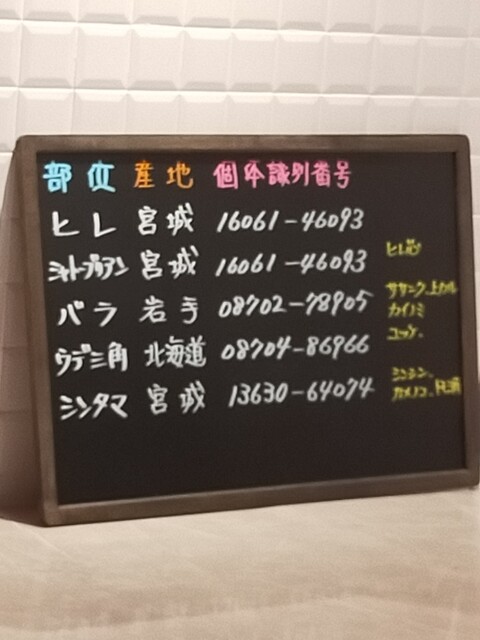 部位 産地 個体識別番号
ヒレ 宮城 16061-46093
シャトーブリアン 宮城 16061-46093
ヒレ芯
バラ 岩手 08702-78905
ササニク.上カルビ
カイノミ
ウデ三角 北海道 08704-86966
コッケ.
シンタマ 宮城 13630-64074
シンシン.
カメノコ.